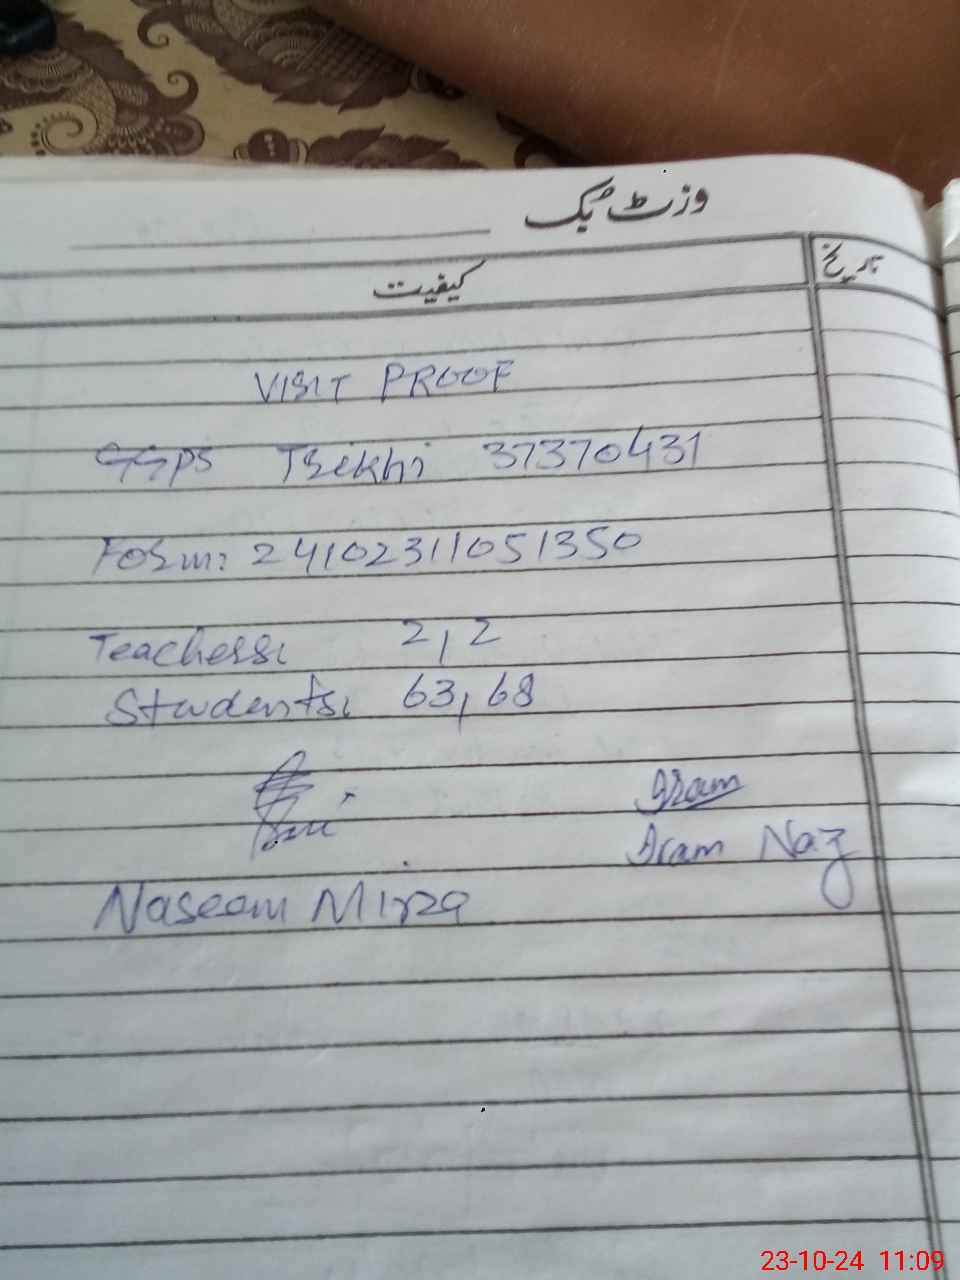 وزٹ بک
تاریخ
کیفیت
VISIT PROOF
GGPS Trikhi 37370431
Form: 24102311051350
Teachers: 2, 2
Students: 63, 68
Iram
Iram Naz
Naseem Mirza
23-10-24 11:09